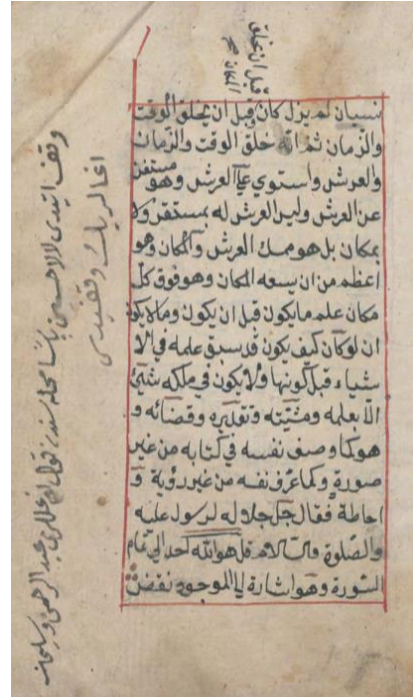 قبل ان يخلق
المكان صح
نسيان لم يزل كان قبل ان يخلق الوقت
والزمان ثم انه خلق الوقت والزمان
والعرش واستوي علي العرش وهو مستغن
عن العرش وليس العرش له بمستقر ولا
بمكان بل هو ممسك العرش والمكان وهو
اعظم من ان يسعه المكان وهو فوق كل
مكان علم ما يكون قبل ان يكون وما لا يكون
ان لو كان كيف يكون قد سبق علمه في الا
شياء قبل كونها ولا يكون في ملكه شئ
الا بعلمه ومشيته وتقديره وقضائه و
هو كما وصف نفسه في كتابه من غير
صورة وكما عرف نفسه من غير رؤية و
احاطة فقال جل جلاله لرسول عليه
والصلوة والسلام قل هو الله احد الي تمام
السورة وهو اشارة الي الموجود نقض
وقف ايتدى لالا حسين پاشا محله سنده عبد الرحمن وسليمان
اغالريك وقفيدى